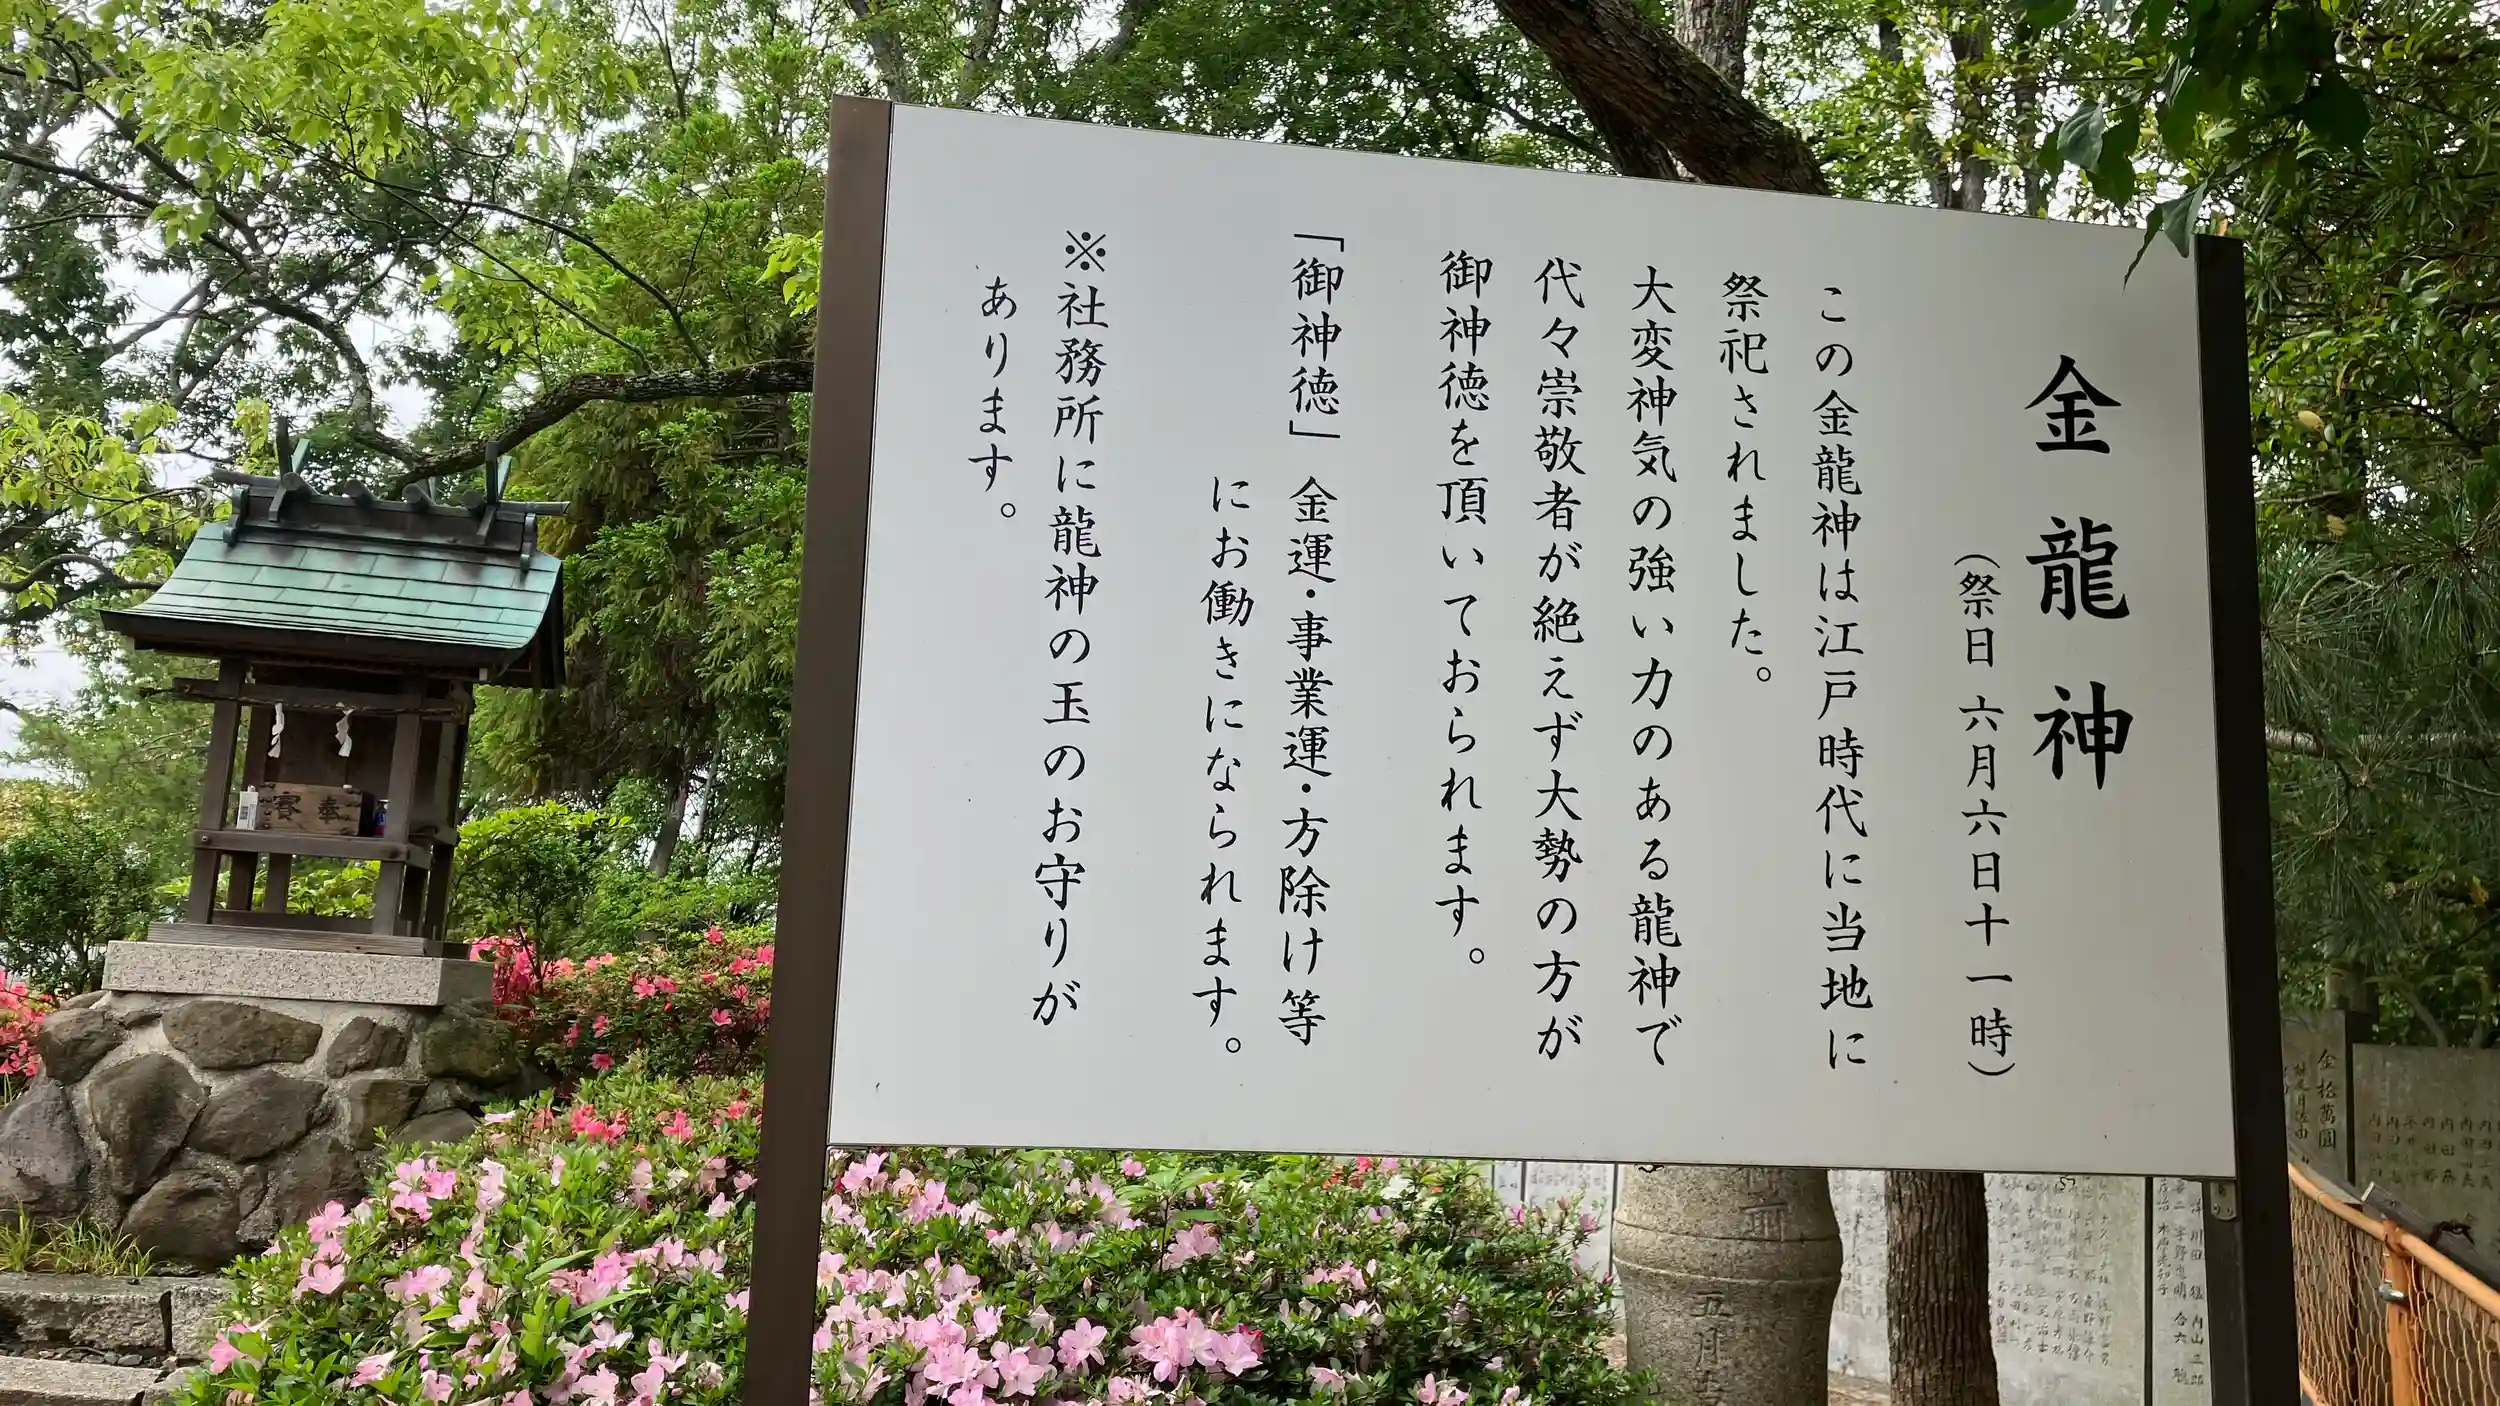 金龍神
（祭日 六月六日十一時）
この金龍神は江戸時代に当地に
祭祀されました。
大変神気の強い力のある龍神で
代々崇敬者が絶えず大勢の方が
御神徳を頂いておられます。
「御神徳」 金運・事業運・方除け等
にお働きになられます。
※社務所に龍神の玉のお守りが
あります。
賽奉
五月